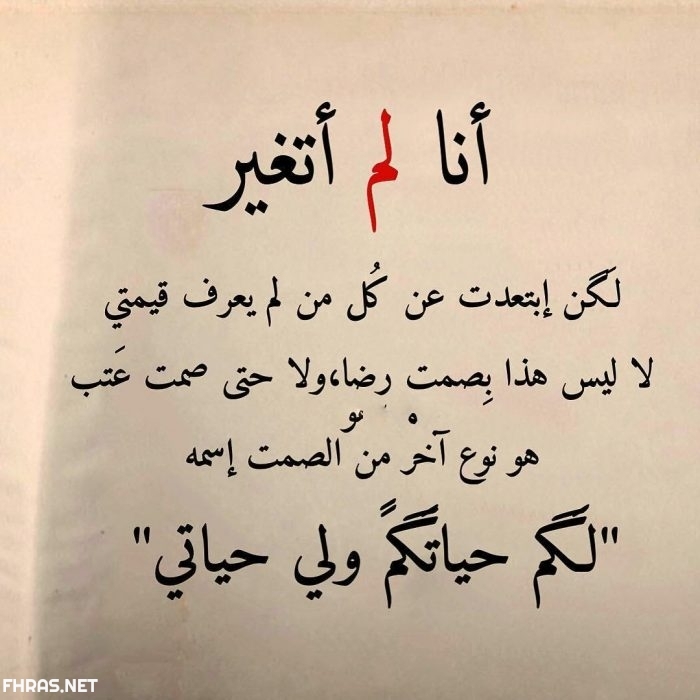 أنا لم أتغير
لَگن إبتعدت عن كُل من لم يعرف قيمتي
لا ليس هذا بِصمت رضا،ولا حتى صمت عَتب
هو نوع آخرْ من الصمت إسمه
"لَگم حياتَگمً ولي حياتي"
FHRAS.NET